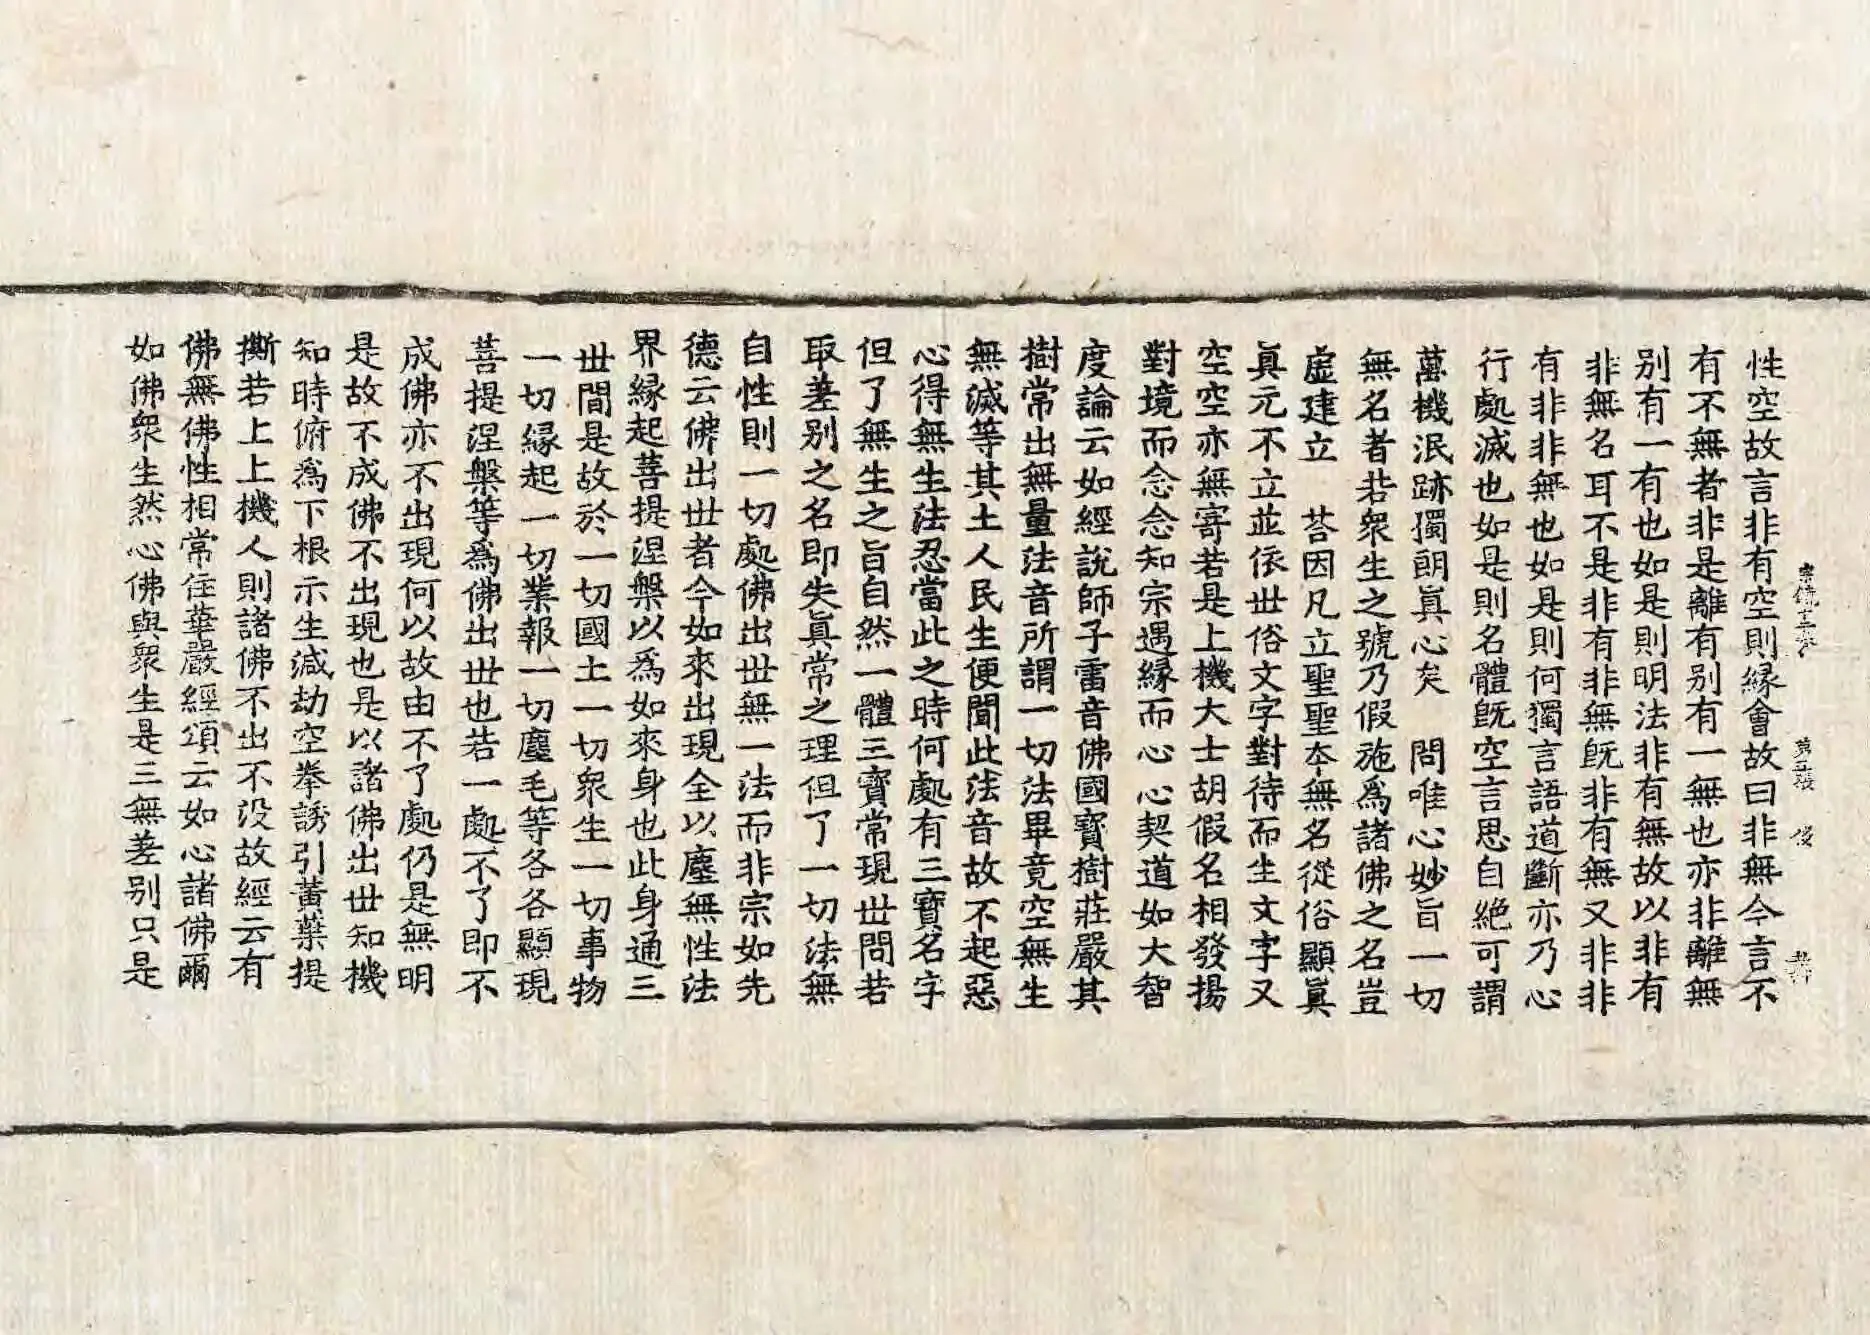 性空故言非有空則緣會故曰非無今言不
有不無者非是離有别有一無也亦非離無
别有一有也如是則明法非有無故以非有
非無名耳不是非有非無旣非有無又非非
有非非無也如是則何獨言語道斷亦乃心
行處滅也如是則名體旣空言思自絶可謂
萬機泯跡獨朗眞心矣　問唯心妙旨一切
無名者若衆生之號乃假施爲諸佛之名豈
虛建立　荅因凡立聖聖夲無名從俗顯眞
眞元不立並依世俗文字對待而生文字又
空空亦無寄若是上機大士胡假名相發揚
對境而念念知宗遇緣而心心契道如大智
度論云如經說師子雷音佛國寶樹莊嚴其
樹常出無量法音所謂一切法畢竟空無生
無滅等其土人民生便聞此法音故不起惡
心得無生法忍當此之時何處有三寶名字
但了無生之旨自然一體三寶常現世問若
取差别之名即失眞常之理但了一切法無
自性則一切處佛出世無一法而非宗如先
德云佛出世者今如來出現全以塵無性法
界緣起菩提涅槃以爲如來身也此身通三
世間是故於一切國土一切衆生一切事物
一切緣起一切業報一切塵毛等各各顯現
菩提涅槃等爲佛出世也若一處不了即不
成佛亦不出現何以故由不了處仍是無明
是故不成佛不出現也是以諸佛出世知機
知時俯爲下根示生減劫空拳誘引黃葉提
撕若上上機人則諸佛不出不没故經云有
佛無佛性相常住華嚴經頌云如心諸佛爾
如佛衆生然心佛與衆生是三無差别只是